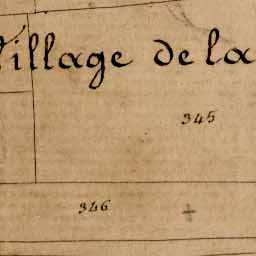 Village de la
345
346